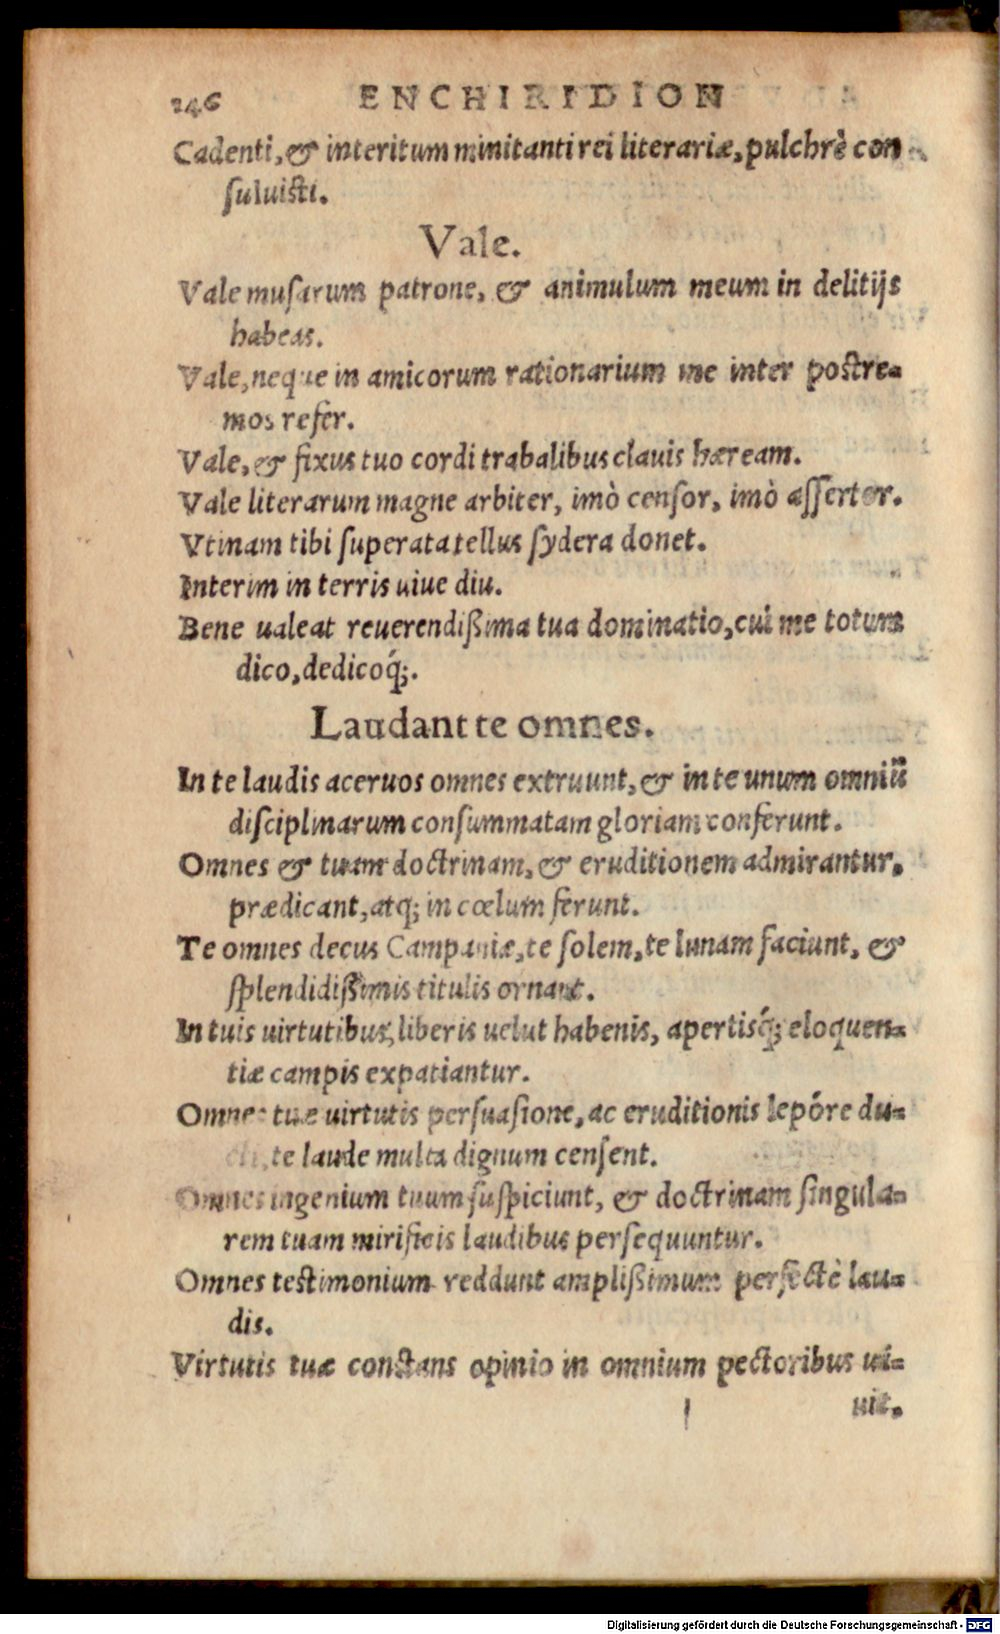 246 ENCHIRIDION
Cadenti, & interitum minitanti rei literariæ, pulchrè con
suluisti.
Vale.
Vale musarum patrone, & animulum meum in delitijs
habeas.
Vale, neque in amicorum rationarium me inter postre-
mos refer.
Vale, & fixus tuo cordi trabalibus clauis hæream.
Vale literarum magne arbiter, imò censor, imò assertor.
Vtinam tibi superata tellus sydera donet.
Interim in terris uiue diu.
Bene ualeat reuerendißima tua dominatio, cui me totum
dico, dedicoq́;.
Laudant te omnes.
In te laudis aceruos omnes extruunt, & in te unum omniũ
disciplinarum consummatam gloriam conferunt.
Omnes & tuam doctrinam, & eruditionem admirantur,
prædicant, atq; in cœlum ferunt.
Te omnes decus Campaniæ, te solem, te lunam faciunt, &
splendidißimis titulis ornant.
In tuis uirtutibus, liberis uelut habenis, apertisq́; eloquen-
tiæ campis expatiantur.
Omnes tuæ uirtutis persuasione, ac eruditionis lepóre du-
cti, te laude multa dignum censent.
Omnes ingenium tuum suspiciunt, & doctrinam singula-
rem tuam mirificis laudibus persequuntur.
Omnes testimonium reddunt amplißimum perfectè lau-
dis.
Virtutis tuæ constans opinio in omnium pectoribus ui-
uit.
Digitalisierung gefördert durch die Deutsche Forschungsgemeinschaft - DFG